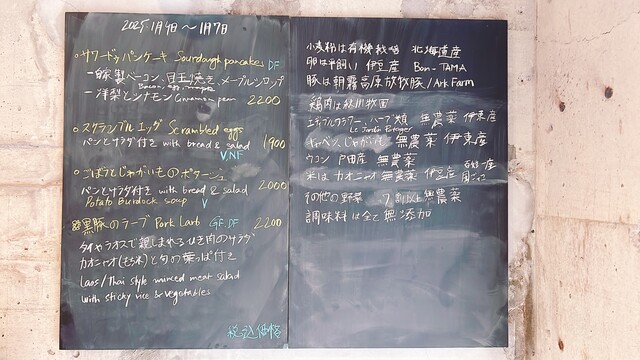 2025. 1月4日 〜 1月7日
○サワードゥパンケーキ Sourdough pancakes DF
－自家製ベーコン、目玉焼き、メープルシロップ
Bacon, egg, maple
－洋梨とシナモン Cinnamon pear 2200
○スクランブルエッグ Scrambled eggs
パンとサラダ付き with bread & salad 1900
V, NF
○ごぼうとじゃがいものポタージュ
パンとサラダ付き with bread & salad 2000
Potato Burdock soup V
黒豚のラープ Pork Larb GF. DF 2200
タイやラオスで親しまれるひき肉のサラダ
カオニャオ(もち米)と旬の葉っぱ付き
Laos/Thai style minced meat salad
with sticky rice & vegetables
税込価格
小麦粉は有機栽培 北海道産
卵は平飼い 伊豆産 Bon-TAMA
豚は朝霧高原放牧豚/Ark Farm
鶏肉は
エディブルフラワー、ハーブ類 無農薬 伊東産
Le Jardin Potager
キャベツ、じゃがいも 無農薬 伊東産
ウコン 戸田産 無農薬
米は カオニャオ 無農薬 伊豆産
その他の野菜 7割以上無農薬
調味料は全て無添加